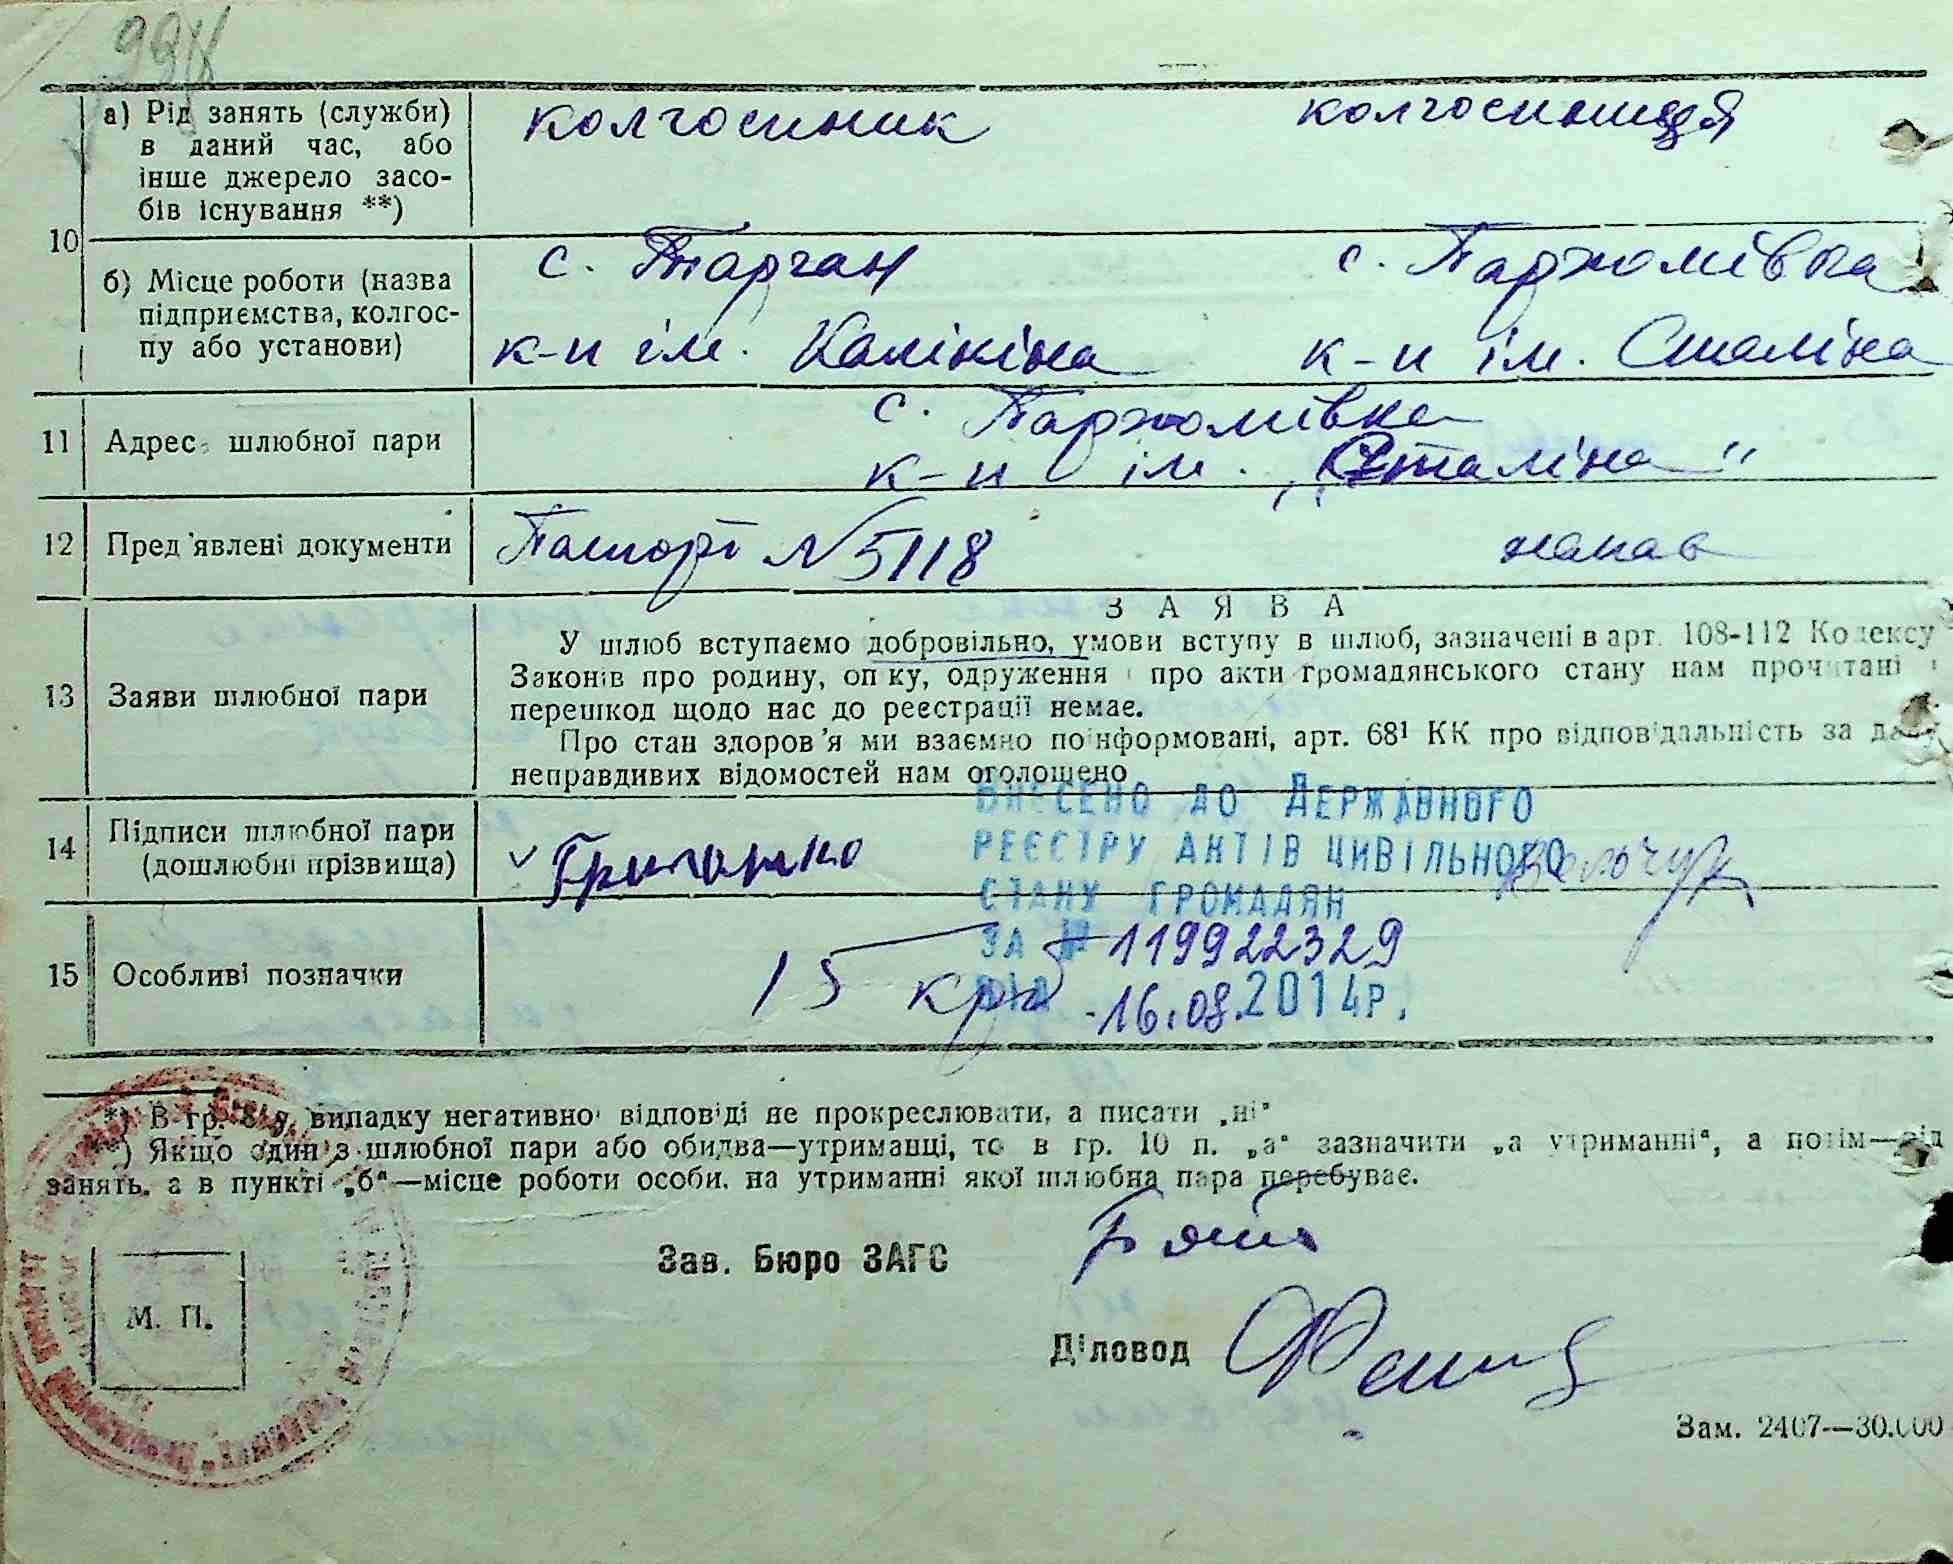 а) Рід занять (служби)
в даний час, або
інше джерело засо-
бів існування **)
колгоспник колгоспниця
10
б) Місце роботи (назва
підприємства, колгос-
пу або установи)
с. Тарган с. Пархомівка
к-п ім. Калініна к-п ім. Сталіна
11 Адрес шлюбної пари
с. Пархомівка
к-п ім. „Сталіна"
12 Пред'явлені документи Паспорт №5118
З А Я В А
13 Заяви шлюбної пари
У шлюб вступаємо добровільно, умови вступу в шлюб, зазначені в арт. 108-112 Кодексу
Законів про родину, опіку, одруження і про акти громадянського стану нам прочитані і
перешкод щодо нас до реєстрації немає.
Про стан здоров'я ми взаємно поінформовані, арт. 68¹ КК про відповідальність за дачу
неправдивих відомостей нам оголошено
14 Підписи шлюбної пари
(дошлюбні прізвища)
ВНЕСЕНО ДО ДЕРЖАВНОГО
РЕЄСТРУ АКТІВ ЦИВІЛЬНОГО
СТАНУ ГРОМАДЯН
ЗА № 119922329
ВІД 16.08.2014р.
15 Особливі позначки 15 крб
*) В гр. 8 у випадку негативної відповіді не прокреслювати, а писати „ні"
**) Якщо один з шлюбної пари або обидва—утриманці, то в гр. 10 п. „а" зазначити „а утриманні", а потім—рід
занять, а в пункті „б"—місце роботи особи, на утриманні якої шлюбна пара перебуває.
Зав. Бюро ЗАГС
М. П.
Діловод
Зам. 2407—30.000